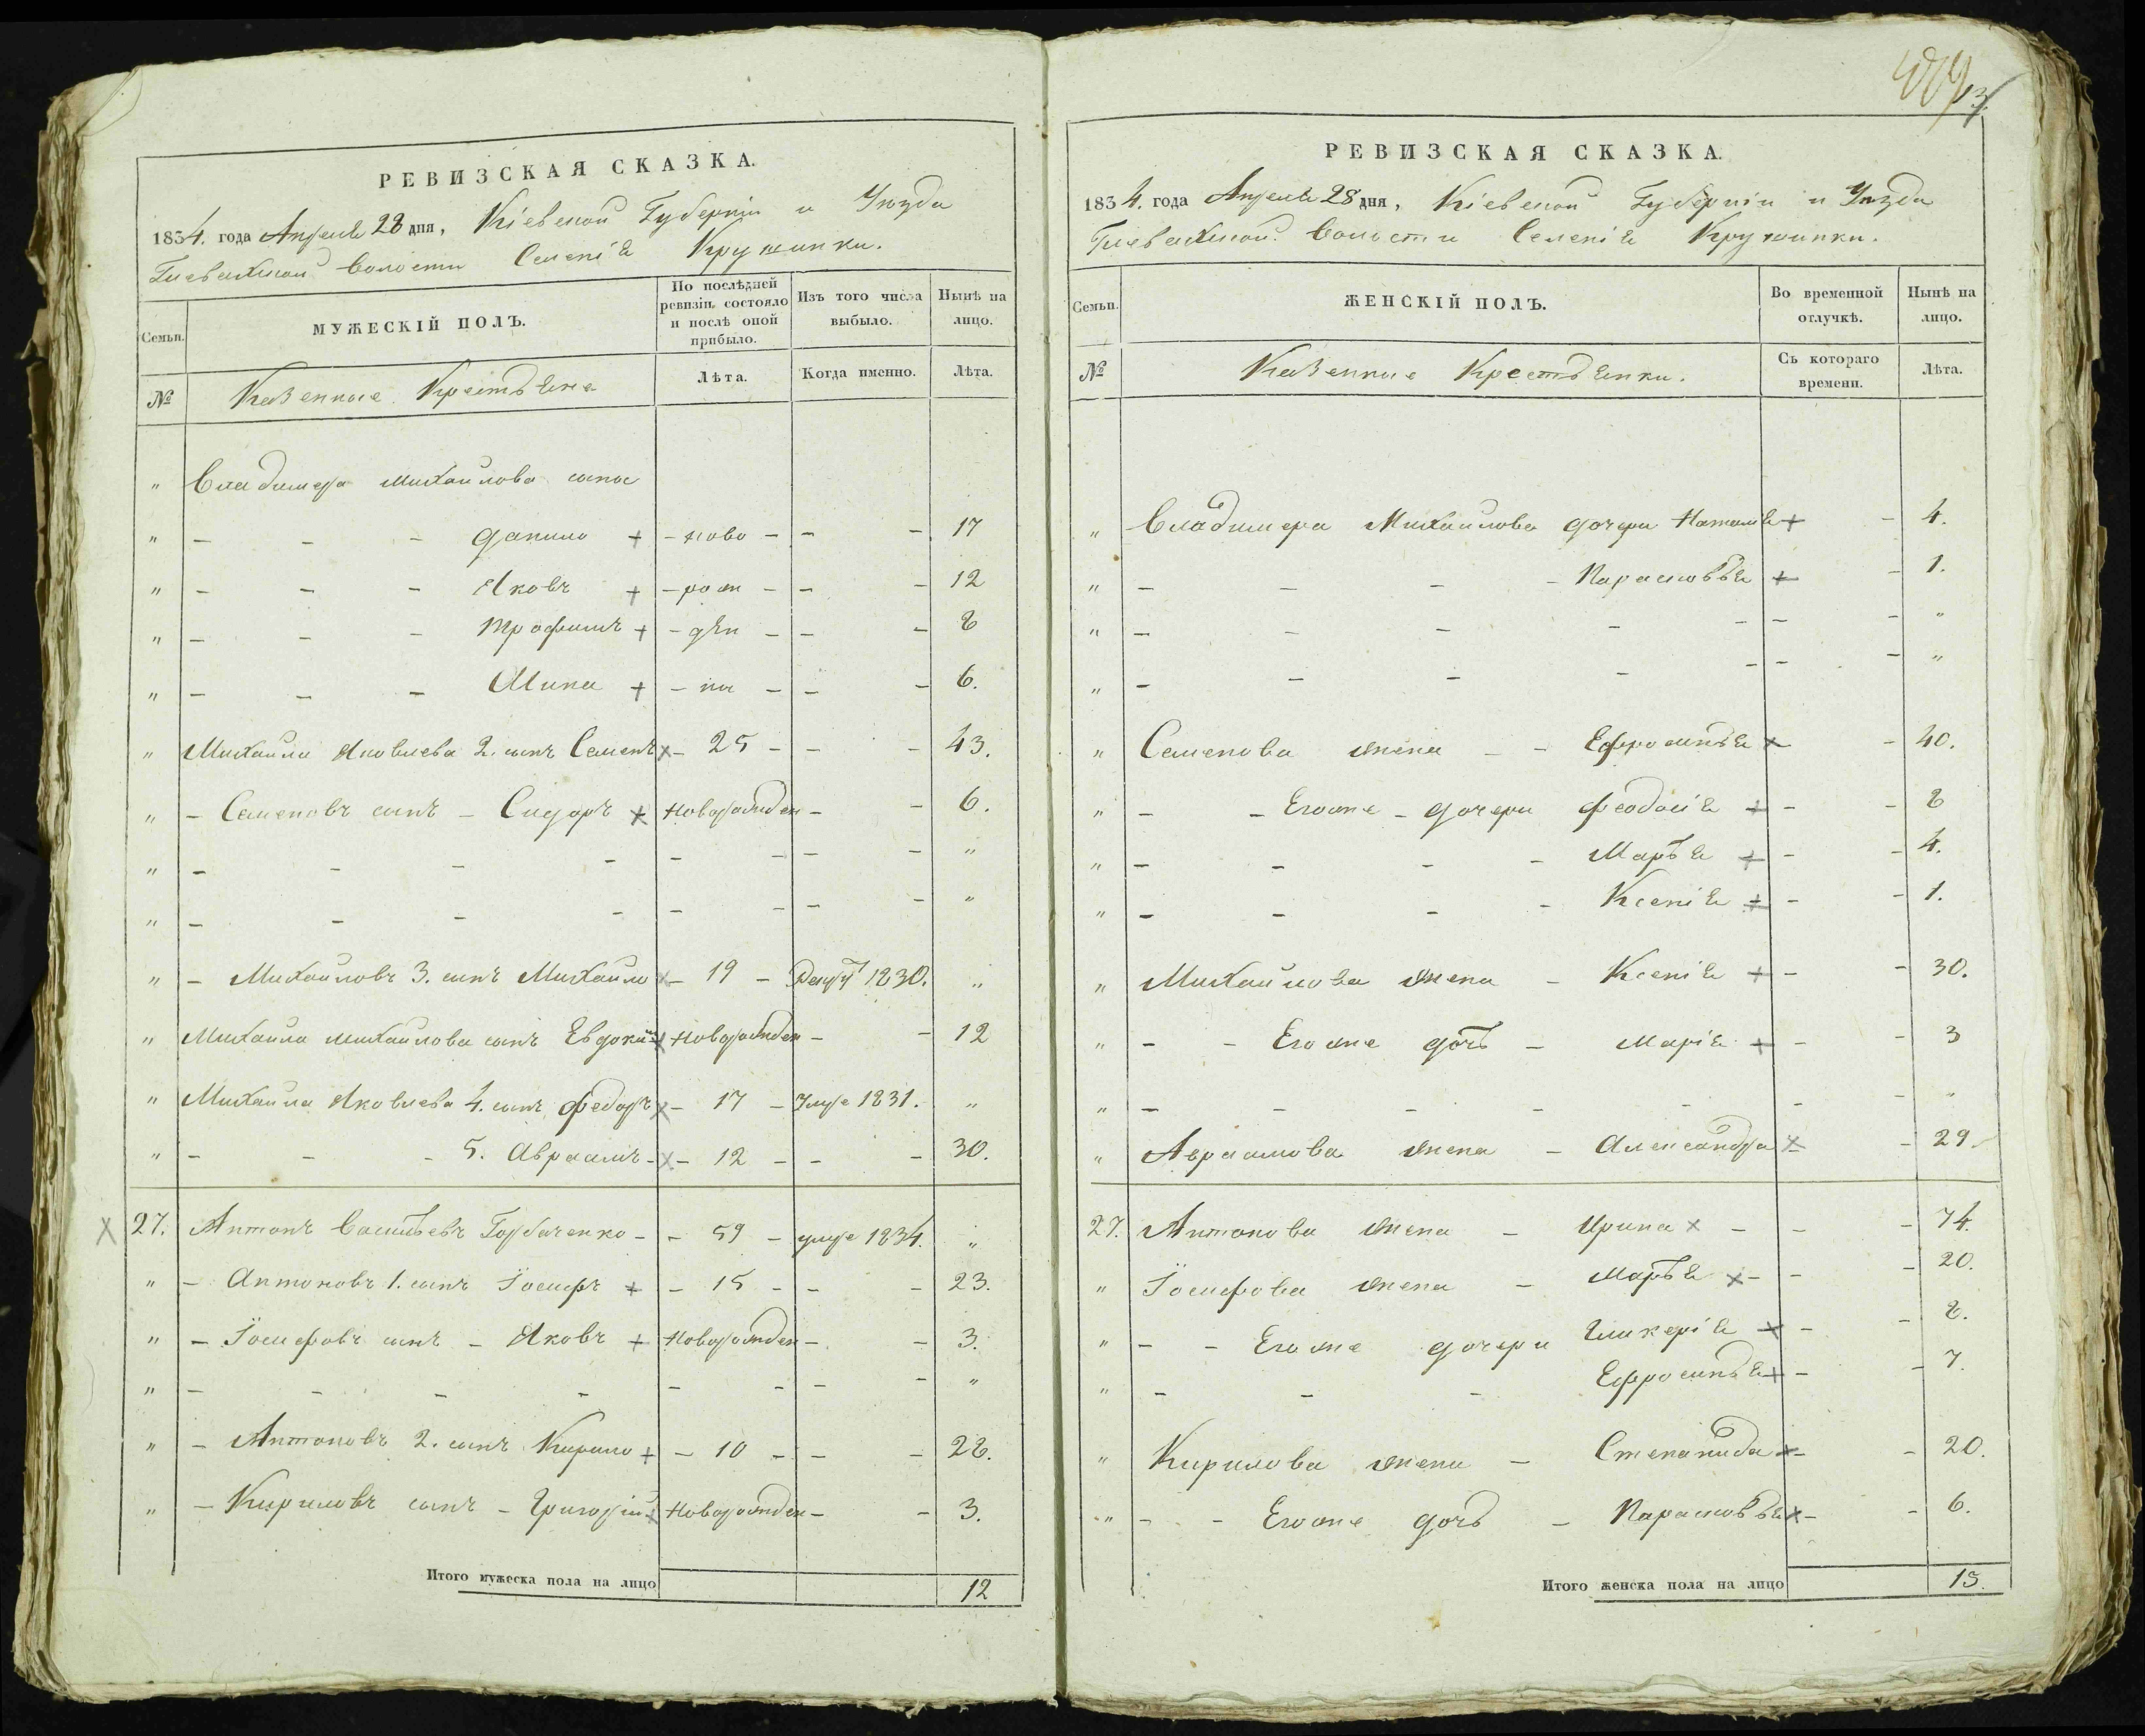 489
13
РЕВИЗСКАЯ СКАЗКА.
1834. года Апреля 28 дня, Кіевской Губерніи и Уѣзда
Гвоздовской Волости Селенія Кружинки.
Семьи.
МУЖЕСКІЙ ПОЛЪ.
По послѣдней ревизіи состояло и послѣ оной прибыло.
Изъ того числа выбыло.
Нынѣ на лицо.
№
Казенные Крестьяне
Лѣта.
Когда именно.
Лѣта.
" Владимера Михайлова сына
" - - - Данило + - ново - - - 17
" - - - Яковъ + - рож - - - 12
" - - - Трофимъ + - ден - - - 8
" - - - Мина + - на - - - 6.
" Михайла Яковлева 2. сынъ Семенъ x - 25 - - - 43.
" - Семеновъ сынъ - Сидоръ x Новорожден - - 6.
" - - - - - - - - "
" - - - - - - - - "
" - Михайловъ 3. сынъ Михайло x - 19 - Рекрут 1830. "
" Михайла Михайлова сынъ Евдоким x Новорожден - - 12
" Михайла Яковлева 4. сынъ Федоръ x - 17 - Умре 1831. "
" - - - 5. Авраамъ - x - 12 - - - 30.
x 27. Антонъ Васильевъ Горбаченко - - 59 - умре 1834. "
" - Антоновъ 1. сынъ Іосифъ + - 15 - - - 23.
" - Іосифовъ сынъ - Яковъ + Новорожден - - 3.
" - - - - - - - - "
" - Антоновъ 2. сынъ Кирило + - 10 - - - 28.
" - Кириловъ сынъ - Григорій x Новорожден - - 3.
Итого мужеска пола на лицо 12
РЕВИЗСКАЯ СКАЗКА.
1834. года Апреля 28 дня, Кіевской Губерніи и Уѣзда
Волости Селенія Кружинки.
Семьи.
ЖЕНСКІЙ ПОЛЪ.
Во временной отлучкѣ.
Нынѣ на лицо.
№
Казенные Крестьянки.
Съ котораго времени.
Лѣта.
" Владимера Михайлова дочери Наталія + - 4.
" - - - - Парасковья + - 1.
" - - - - - - - "
" - - - - - - - "
" Семенова жена - - Ефросинья x - 40.
" - - Егоже - дочери Феодосія + - - 8
" - - - - Марья + - - 4.
" - - - - Ксенія + - - 1.
" Михайлова жена - Ксенія + - - 30.
" - - Егоже дочь - Марія + - - 3
" - - - - - - - "
" Авраамова жена - Александра x - 29.
27. Антонова жена - Ирина x - - - 74.
" Іосифова жена - Марья x - - - 20.
" - - Егоже дочери Гликерія x - - 8.
" - - - Ефросинья + - - 7.
" Кирилова жена - Степанида x - - 20.
" - - Егоже дочь - Парасковья x - - 6.
Итого женска пола на лицо 15.